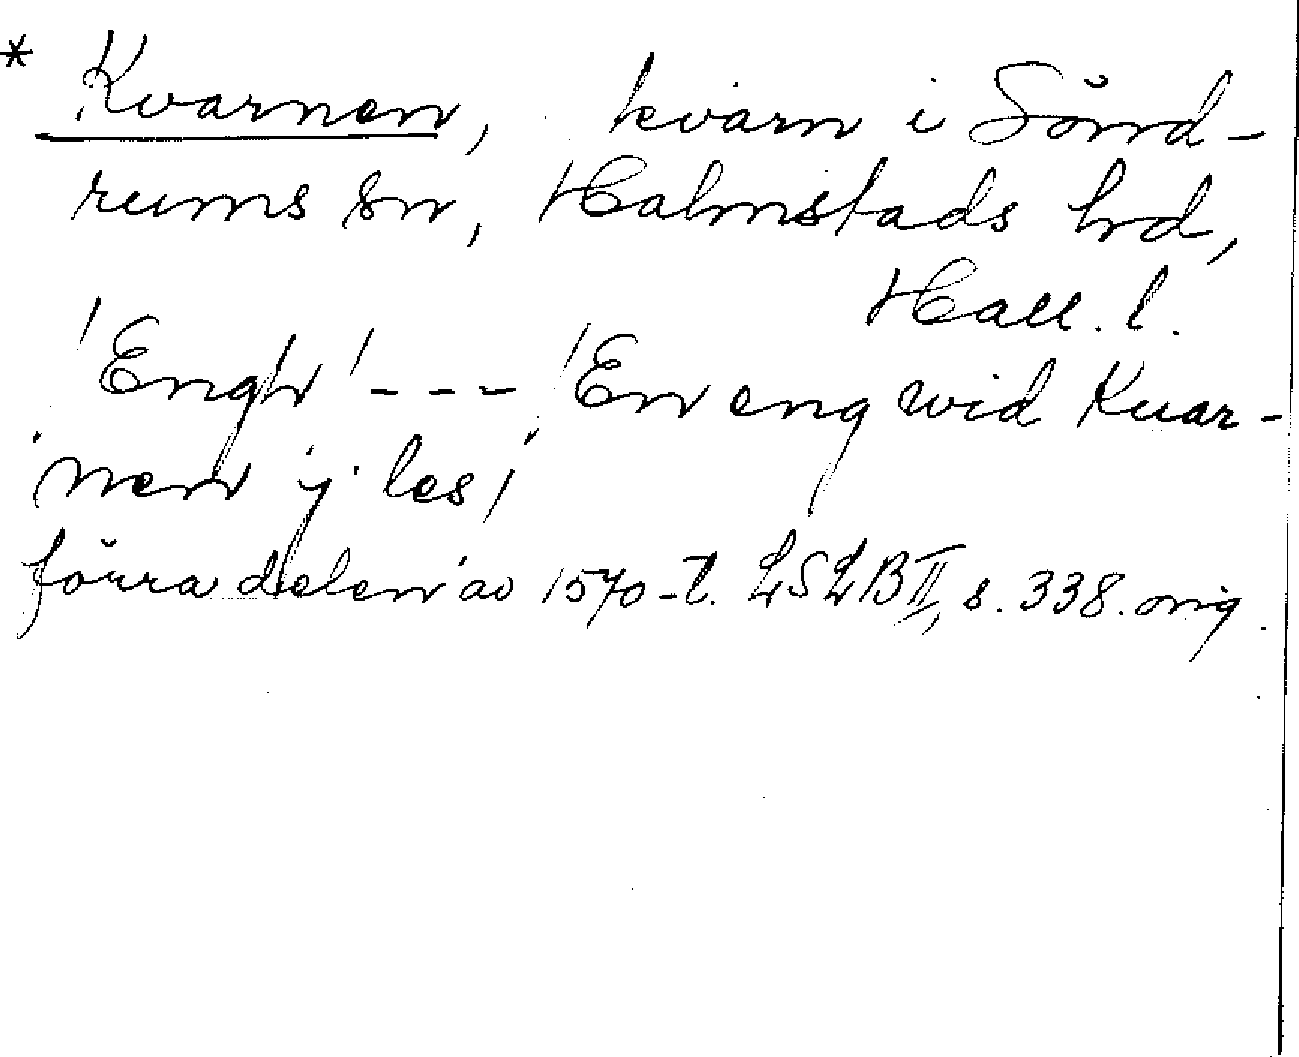 * Kvarnen, kvarn i Sönd-
rums sn, Halmstads hd,
Hall. l.
'Engh' --- 'En eng wid Kuar-
nen ij les'
förra delen av 1570-t. LSLB II, s. 338. orig.